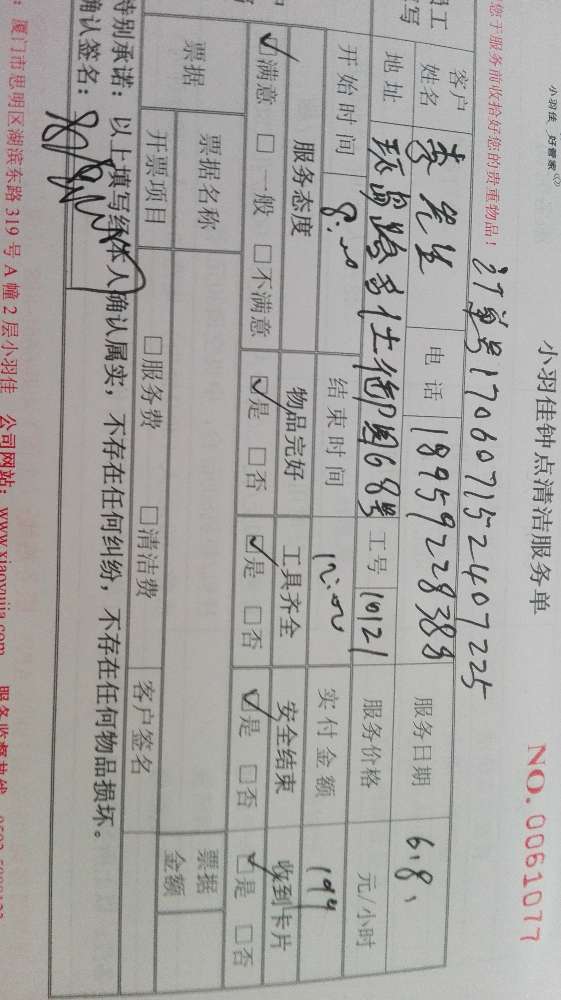 小羽佳 好管家
小羽佳钟点清洁服务单
NO.0061077
您于服务前收拾好您的贵重物品！
订单号170607152407225
客户姓名 李先生 电话 18959228388 服务日期 6.8
地址 68号 工号 10121 服务价格 元/小时
开始时间 8:00 结束时间 12:00 实付金额 194
服务态度 物品完好 工具齐全 安全结束 收到卡片
☑满意 □一般 □不满意 ☑是 □否 ☑是 □否 ☑是 □否 ☑是 □否
票据 票据名称 票据金额
开票项目 □服务费 □清洁费 客户签名
特别承诺：以上填写经本人确认属实，不存在任何纠纷，不存在任何物品损坏。
确认签名：
厦门市思明区湖滨东路319号A幢2层小羽佳 公司网站：www.xiaoyujia.com 服务监督热线